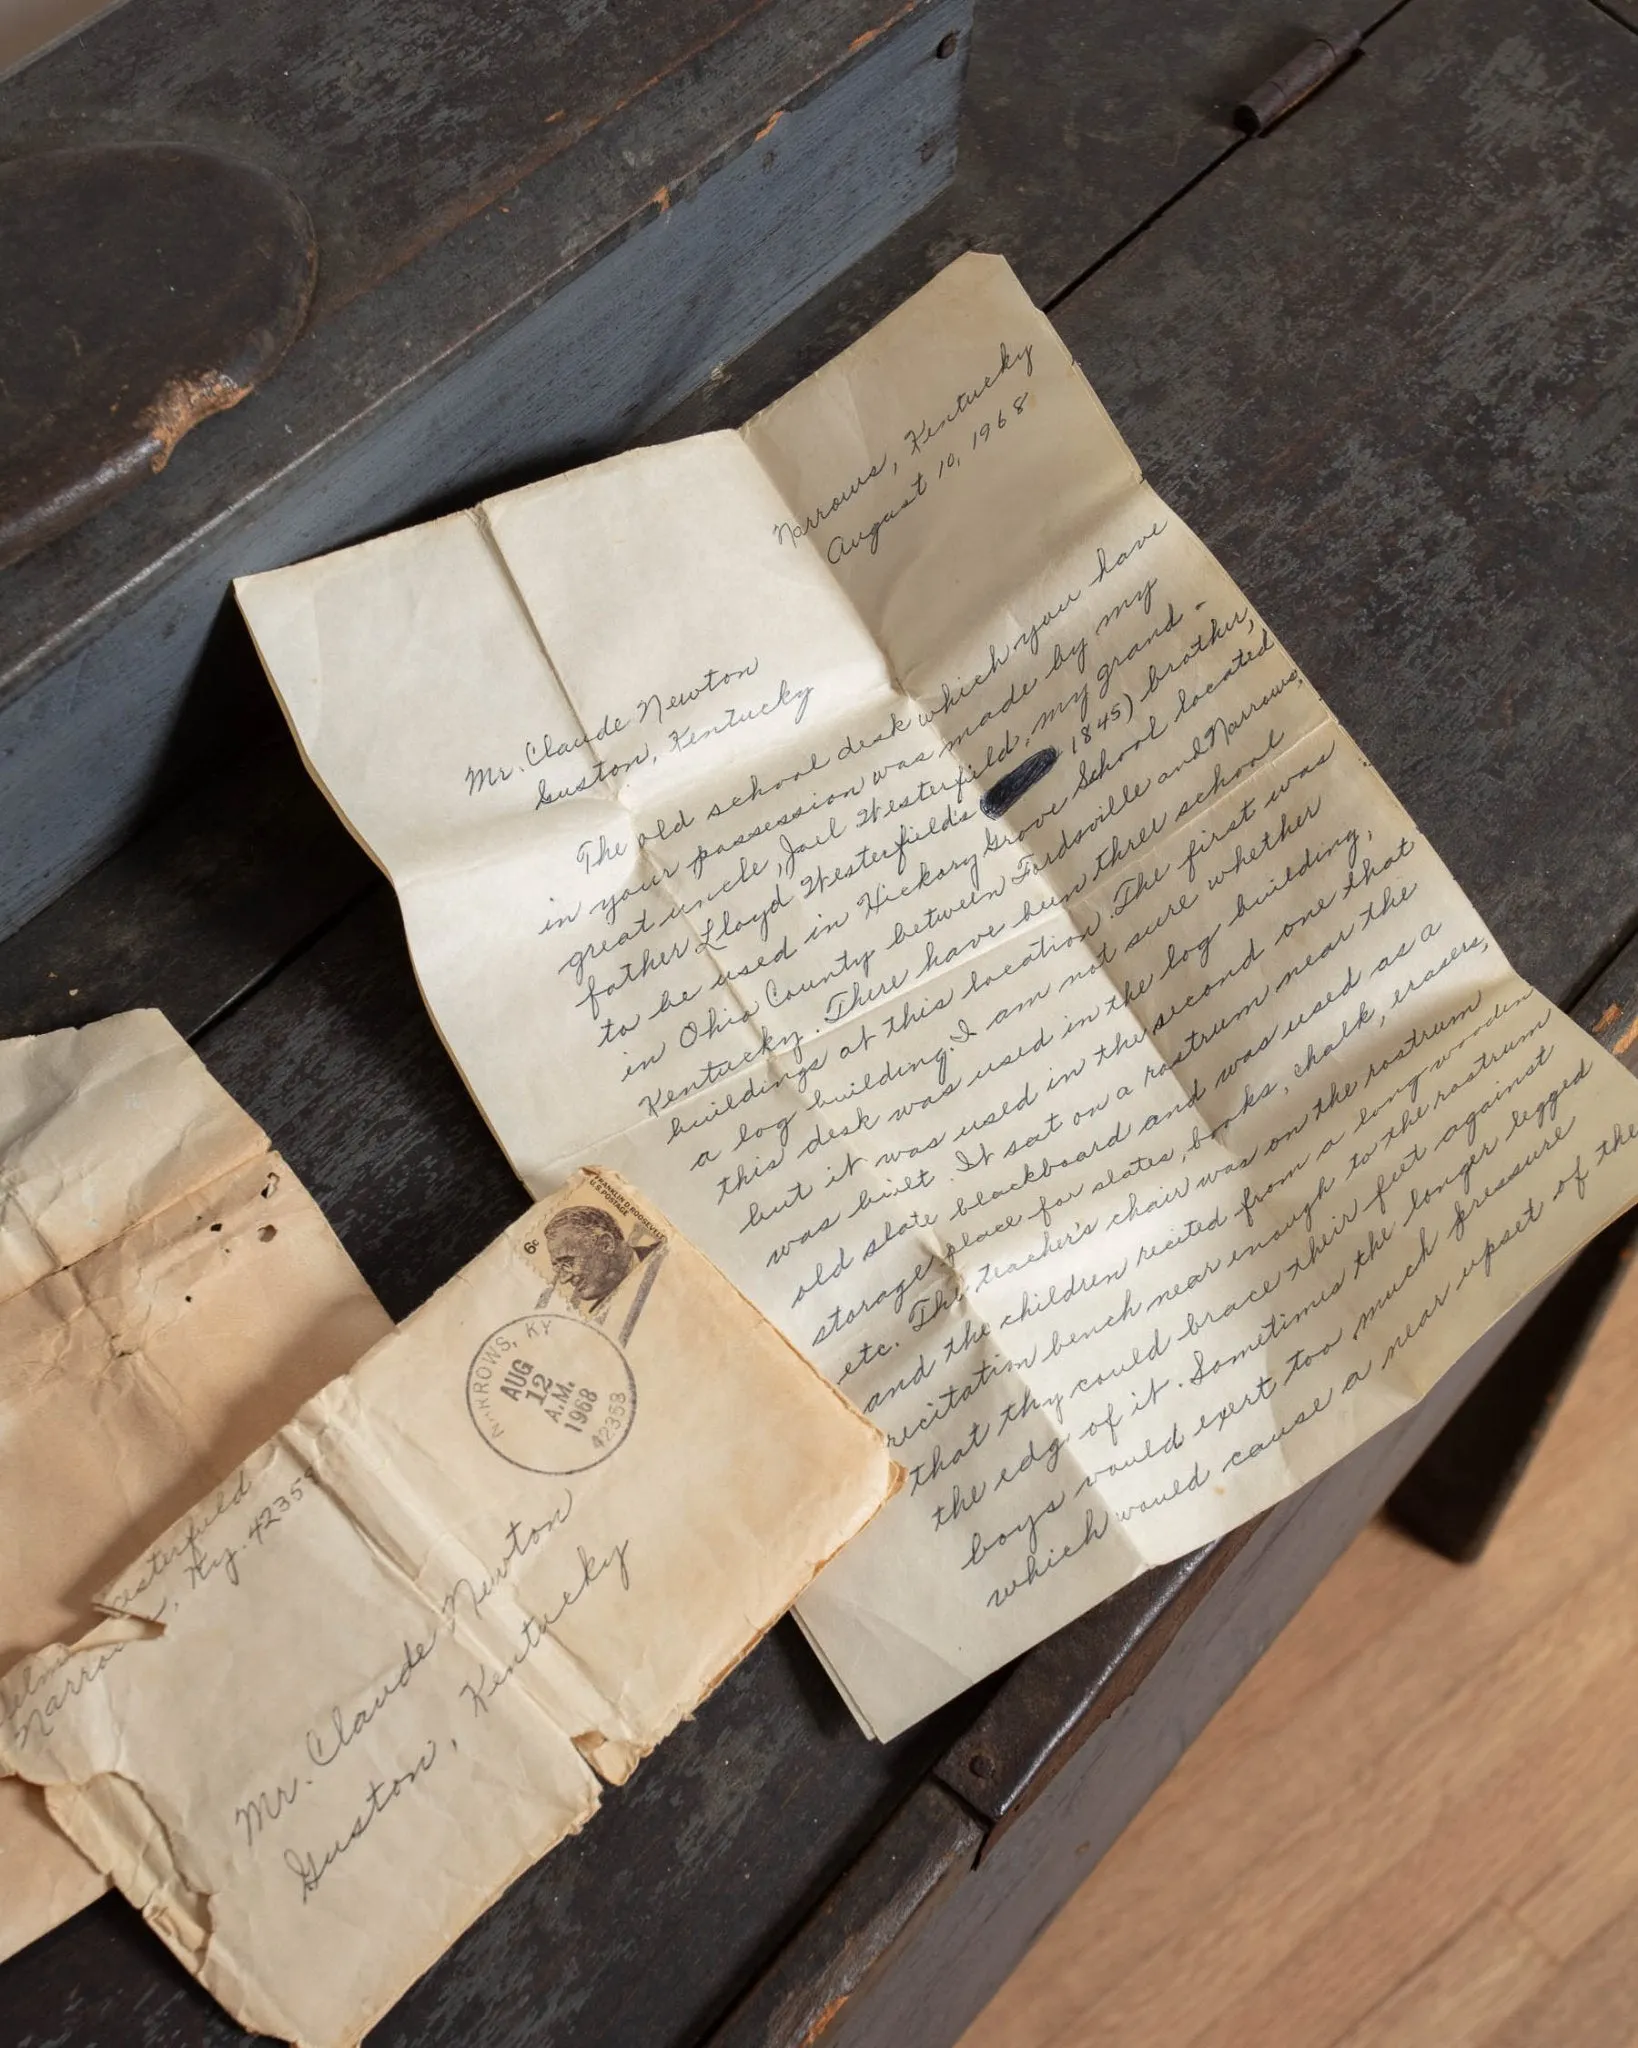 Narrows, Kentucky
August 10, 1968
Mr. Claude Newton
Guston, Kentucky
The old school desk which you have
in your possession was made by my
great uncle, Jail Westerfield, my grand-
father Lloyd Westerfield's 1845) brother,
to be used in Hickory Grove School located
in Ohio County between Fordsville and Narrows,
Kentucky. There have been three school
buildings at this location. The first was
a log building. I am not sure whether
this desk was used in the log building,
but it was used in the second one that
was built. It sat on a rostrum near the
old slate blackboard and was used as a
storage place for slates, books, chalk, erasers,
etc. The teacher's chair was on the rostrum
and the children recited from a long wooden
recitation bench near enough to the rostrum
that thy could brace their feet against
the edg of it. Sometimes the longer legged
boys would exert too much pressure
which would cause a near upset of the
FRANKLIN D. ROOSEVELT
U.S. POSTAGE
6c
NARROWS, KY
AUG
12
A.M.
1968
42358
esterfield
Narrows, Ky. 42358
Mr. Claude Newton
Guston, Kentucky